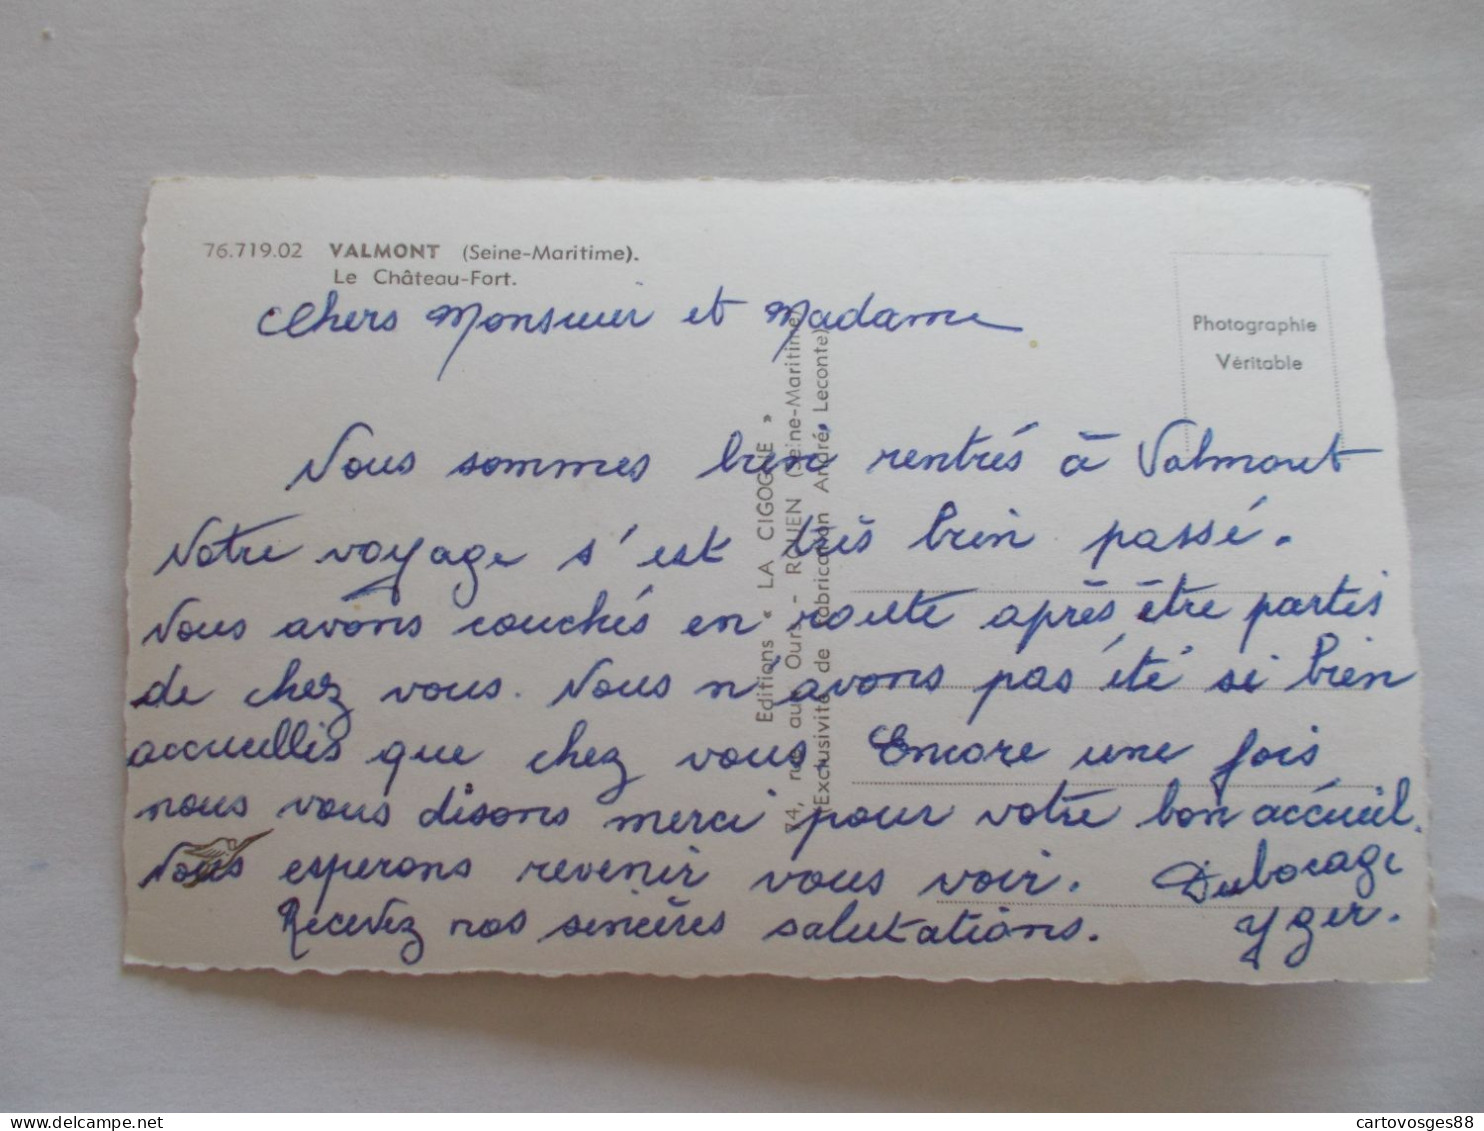 76.719.02 VALMONT (Seine-Maritime).
Le Château-Fort.
Photographie
Véritable
Chers Monsieur et Madame
Nous sommes bien rentrés à Valmont
Notre voyage s'est très bien passé.
Nous avons couchés en route après être partis
de chez vous. Nous n'avons pas été si bien
accueillis que chez vous Encore une fois
nous vous disons merci pour votre bon accueil.
Nous esperons revenir vous voir. Dubocage
Recevez nos sincères salutations. Yger.
Editions « LA CIGOGNE »
74, rue aux Ours - ROUEN (Seine-Maritime)
(Exclusivité de fabrication André Leconte)
delcampe.net
cartovosges88